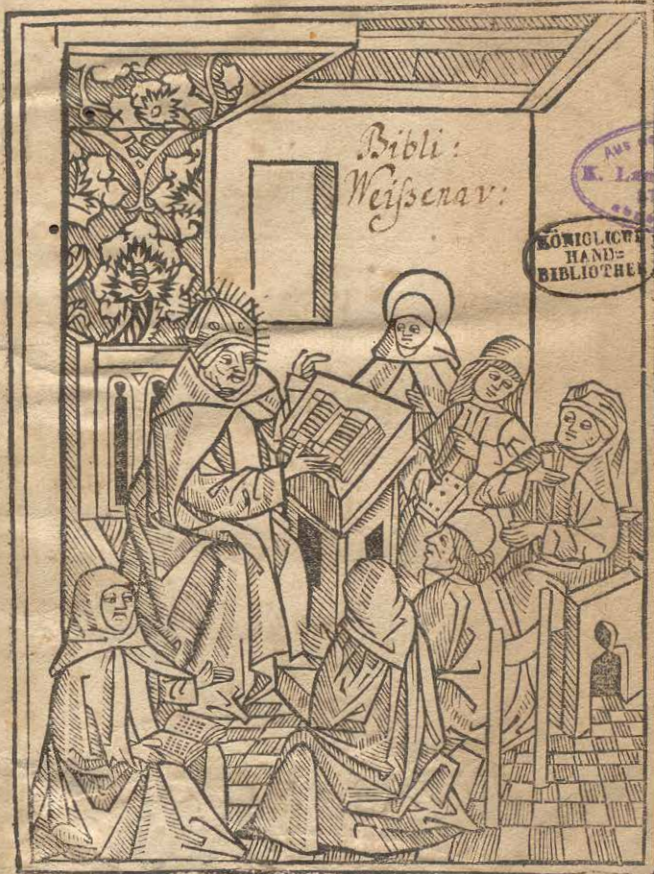 Bibli:
Weißenav:
Aus
K.
KÖNIGLICHE
HAND=
BIBLIOTHEK